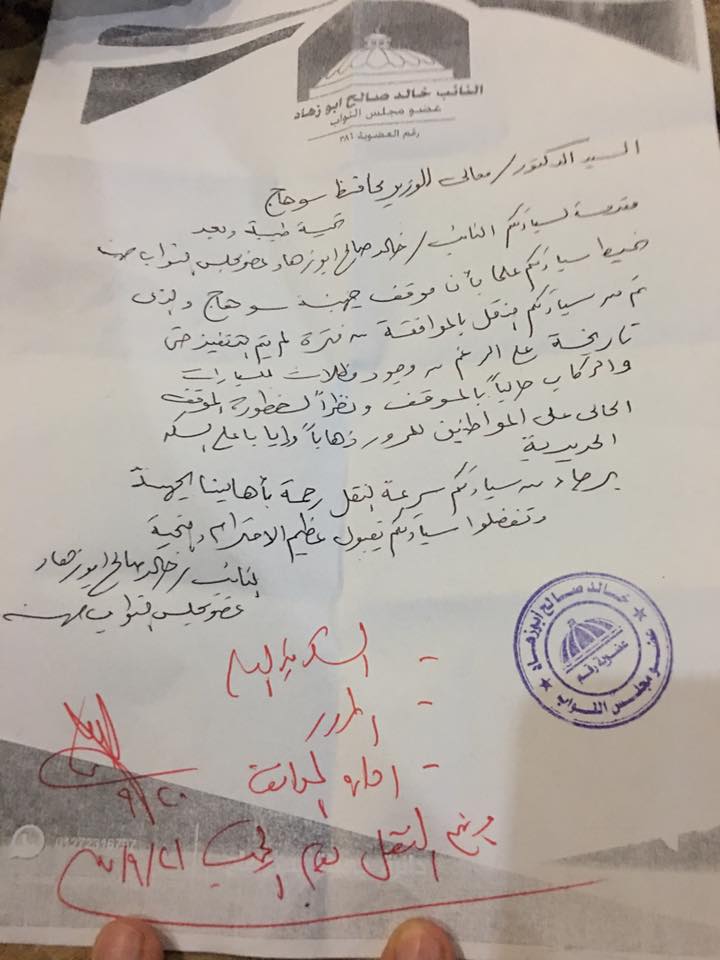 النائب خالد صالح ابو زهاد
عضو مجلس النواب
رقم العضوية ٣٨٦
السيد الدكتور / معالى الوزير محافظ سوهاج
تحية طيبة وبعد
مقدمة لسيادتكم النائب / خالد صالح ابوزهاد عضو مجلس النواب جهينه
نحيط سيادتكم علما بأن موقف جهينة سوهاج والذى
تم من سيادتكم النقل بالموافقة من فترة لم يتم التنفيذ حتى
تاريخة على الرغم من وجود مظلات للسيارات
والركاب حالياً بالموقف ونظراً لخطورة الموقف
الحالى على المواطنين للمرور ذهاباً وايابا على السكه
الحديدية
برجاء من سيادتكم سرعة النقل رحمة بأهالينا بجهينة
وتفضلوا سيادتكم بقبول عظيم الاحترام والتحية
النائب / خالد صالح ابوزهاد
عضو مجلس النواب جهينه
خالد صالح أبوزهاد
عضو مجلس النواب
عضوية رقم
- السكرتير العام
- المرور
- اداره المواقف
٩/٢٠
النقل يوم ٩/٢١